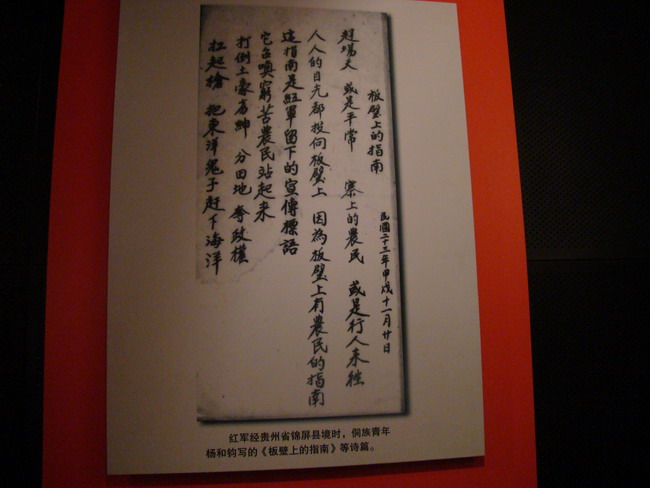 板壁上的指南
民國二十三年甲戌十一月廿日
趕場天 或是平常 寨上的農民 或是行人来往
人人的目光都投向板壁上 因為板壁上有農民的指南
這指南是紅軍留下的宣傳標語
它召喚窮苦農民站起来
打倒土豪劣紳 分田地 奪政權
扛起搶 把東洋鬼子赶下海洋
红军经贵州省锦屏县境时，侗族青年
杨和钧写的《板壁上的指南》等诗篇。